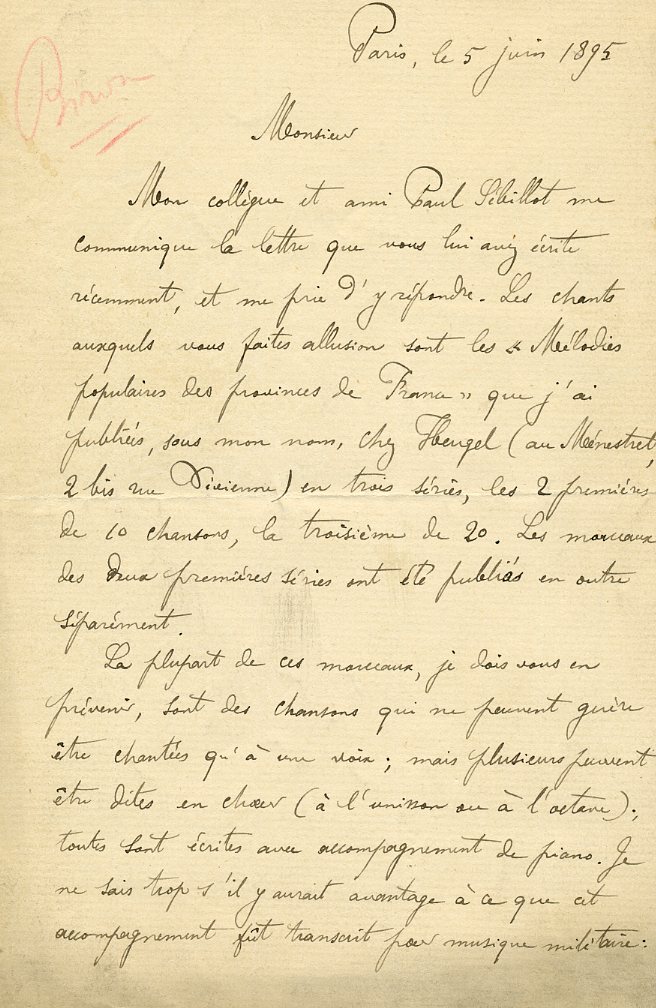 Paris, le 5 juin 1895
Monsieur
Mon collègue et ami Paul Sébillot me
communique la lettre que vous lui avez écrite
récemment, et me prie d'y répondre. Les chants
auxquels vous faites allusion sont les « Mélodies
populaires des provinces de France » que j'ai
publiées, sous mon nom, chez Heugel (au Ménestrel,
2 bis rue Vivienne) en trois séries, les 2 premières
de 10 chansons, la troisième de 20. Les morceaux
des deux premières séries ont été publiés en outre
séparément.
La plupart de ces morceaux, je dois vous en
prévenir, sont des chansons qui ne peuvent guère
être chantées qu'à une voix ; mais plusieurs peuvent
être dites en chœur (à l'unisson ou à l'octave) ;
toutes sont écrites avec accompagnement de piano. Je
ne sais trop s'il y aurait avantage à ce que cet
accompagnement fût transcrit pour musique militaire :